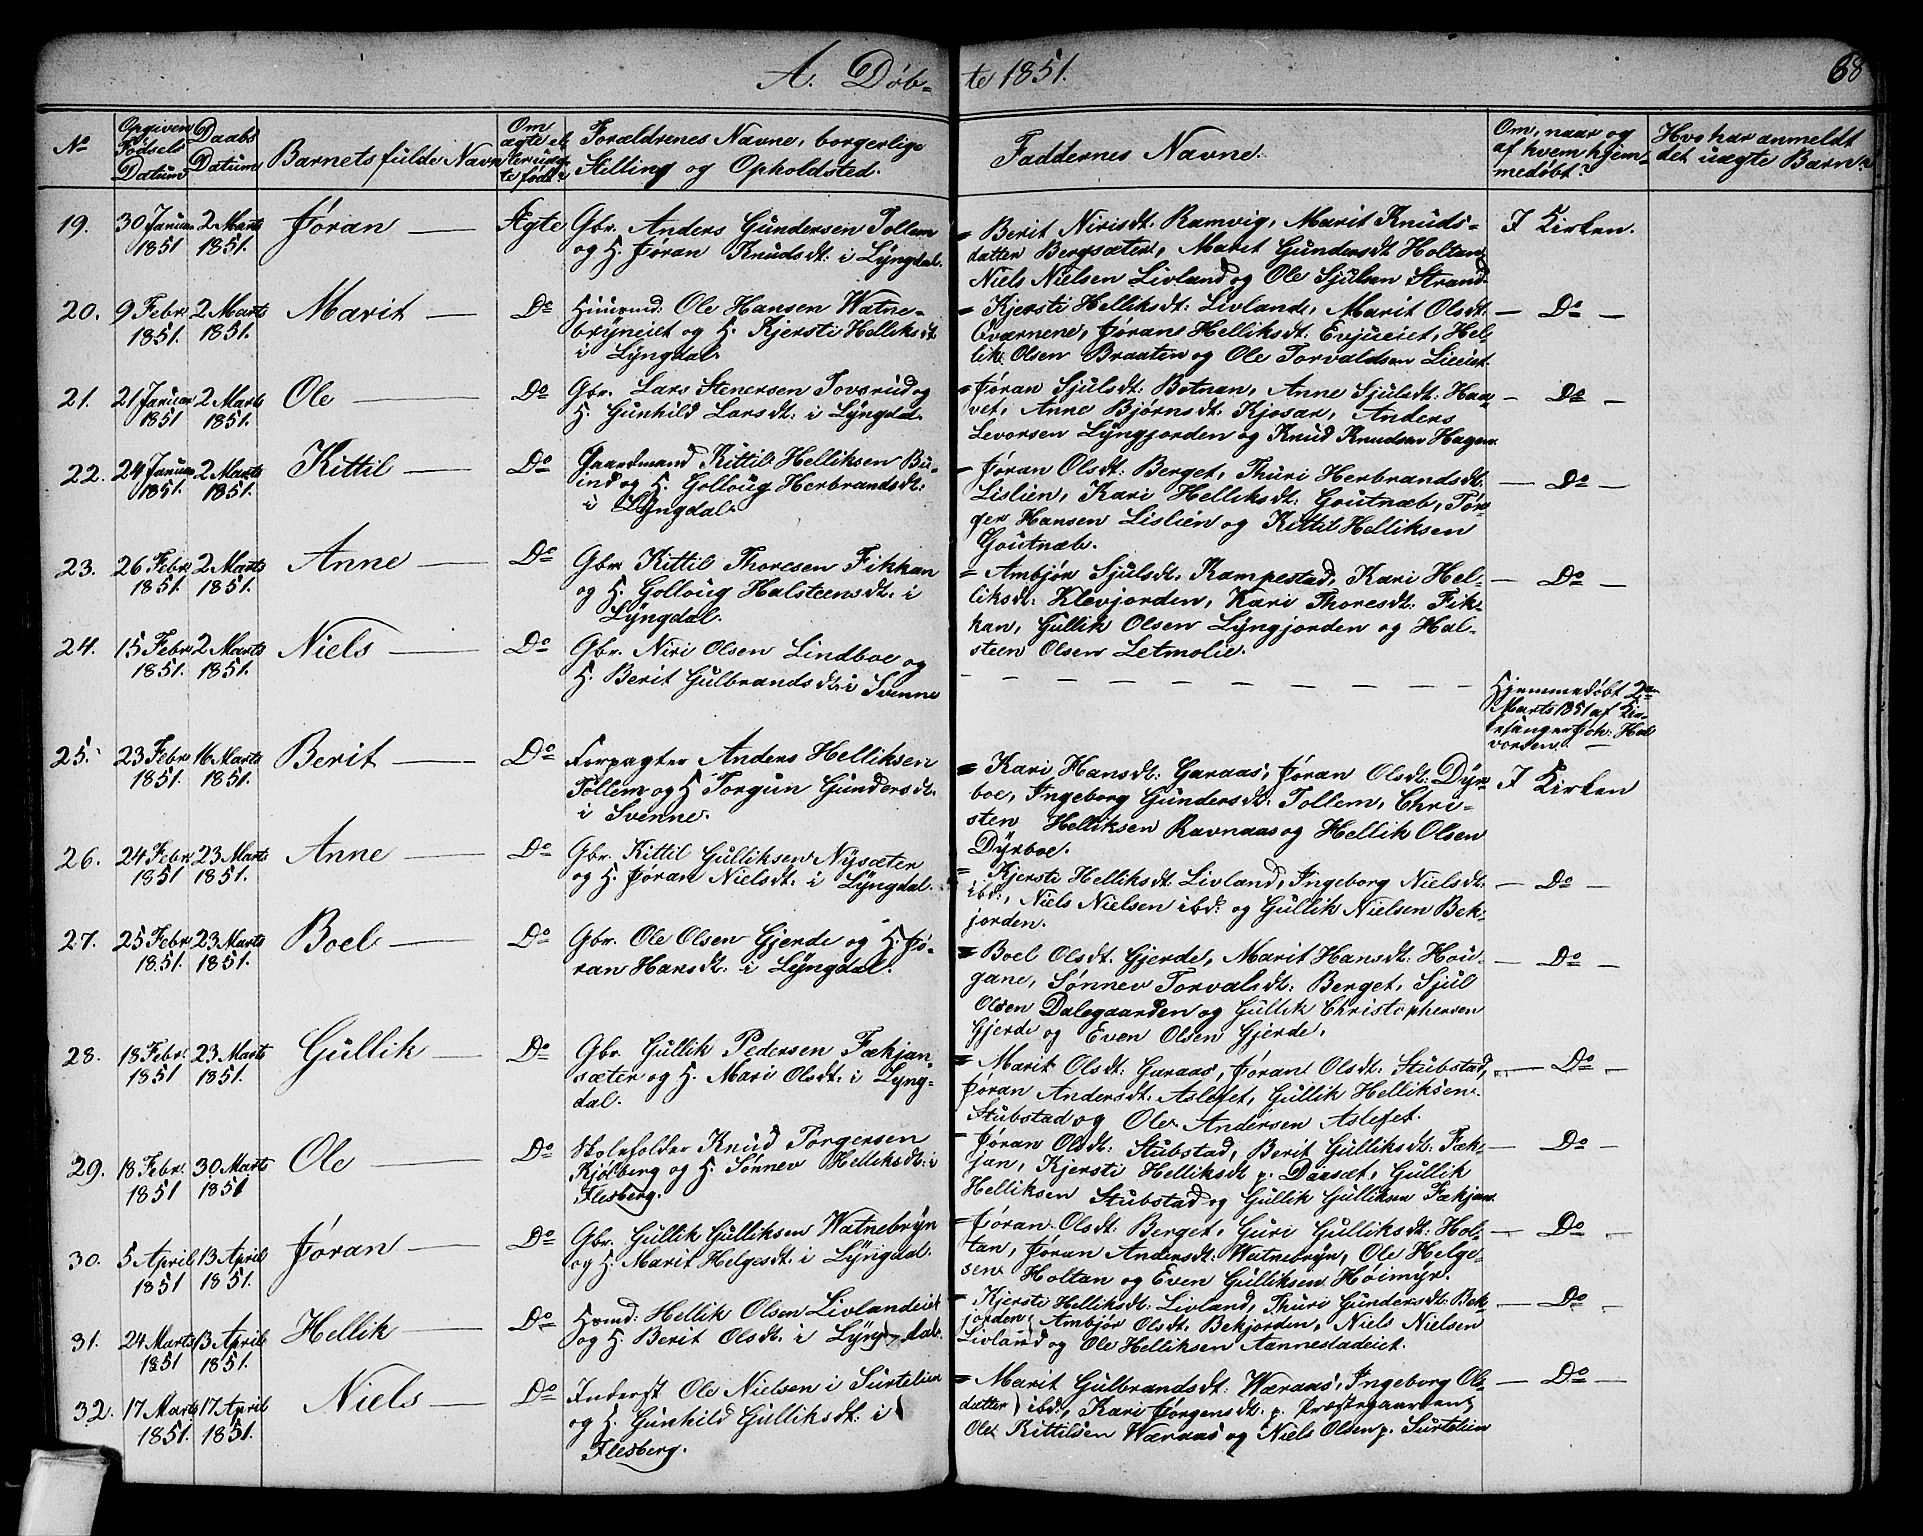 A. Døb-
te 1851.
68
No
Opgiven Fødsels Datum
Daabs Datum
Barnets fulde Navn
Om ægte el. uægte født?
Forældrenes Navne, borgerlige Stilling og Opholdsted.
Faddernes Navne.
Om, naar og af hvem hjemmedøbt?
Hvo har anmeldt det uægte Barn?
19. 30 Januar 1851 2 Marts 1851. Jøran — Ægte
Gbr. Anders Gundersen Tollem
og H. Jøran Knudsdt: i Lyngdal.
= Berit Nirisdt. Ramvig, Marit Knuds-
datter Bergsæter, Marit Gundersdt Holtan,
Niels Nielsen Livland og Ole Sjulsen Strand
I Kirken.
20. 9 Febr. 1851. 2 Marts 1851. Marit — Do
Huusmd: Ole Hansen Watne-
bryneiet og H. Kjersti Helliksdt
i Lyngdal.
= Kjersti Helliksdt: Livland, Marit Olsdt:
Qværnene, Jøran Helliksdt: Evjueiet, Hel
lik Olsen Braaten og Ole Torvaldsen Lieeiet
— Do —
21. 21 Januar 1851 2 Marts 1851. Ole — Do
Gbr. Lars Stenersen Tovsrud og
H. Gunhild Larsdt: i Lyngdal.
= Jøran Sjulsdt: Botnan, Anne Sjulsdt: Haa-
vet, Anne Bjørnsdt: Kjosar, Anders
Levorsen Lyngjorden og Knud Knudsen Hagen
— Do —
22. 24 Januar 1851. 2 Marts 1851. Kittil — Do
Gaardmand Kittil Helliksen Bu-
ind og H. Golloug Herbrandsdt:
i Lyngdal.
= Jøran Olsdt: Berget, Thuri Herbrandsdt:
Lislien, Kari Helliksdt: Goutnæb, Tor-
ger Hansen Lislien og Kittil Helliksen
Goutnæb.
— Do —
23. 26 Febr. 1851. 2 Marts 1851. Anne — Do
Gbr. Kittil Thoresen Fikkan
og H. Golloug Halsteensdt: i
Lyngdal.
= Ambjør Sjulsdt: Rampestad, Kari Hel-
liksdt: Klevjorden, Kari Thoresdt: Fik-
kan, Gullik Olsen Lyngjorden og Hal-
steen Olsen Letmolie.
— Do —
24. 15 Febr. 1851. 2 Marts 1851. Niels — Do
Gbr. Niri Olsen Lindboe og
H. Berit Gulbrandsdt: i Svenne
— — — — — — — — — —
Hjemmedøbt 2den
Marts 1851 af Kir-
kesanger Joh: Hal
vorsen. —
25. 23 Febr 1851. 16 Marts 1851. Berit — Do
Forpagter Anders Helliksen
Tollem og H Torgun Gundersdt.
i Svenne.
= Kari Hansdt: Garaas, Jøran Olsdt: Dyr-
boe, Ingeborg Gundersdt: Tollem, Chri-
sten Helliksen Ravnaas og Hellik Olsen
Dyrboe.
I Kirken
26. 24 Febr. 1851 23 Marts 1851. Anne — Do
Gbr. Kittil Gulliksen Nysæter
og H. Jøran Nielsdt: i Lyngdal.
= Kjersti Helliksdt: Livland, Ingeborg Nielsdt.
ibd:, Niels Nielsen ibd: og Gullik Nielsen Bek-
jorden.
— Do —
27. 25 Febr 1851. 23 Marts 1851. Boel — Do
Gbr. Ole Olsen Gjerde og H. Jø-
ran Hansdt: i Lyngdal.
= Boel Olsdt: Gjerde, Marit Hansdt: Hou-
gane, Sønnev Torvalsdt: Berget, Sjul
Olsen Dalegaarden og Gullik Christophersen
Gjerde og Even Olsen Gjerde.
— Do —
28. 18 Febr. 1851 23 Marts 1851. Gullik — Do
Gbr. Gullik Pedersen Fækjan-
sæter og H. Mari Olsdt: i Lyng-
dal.
= Marit Olsdt: Garaas, Jøran Olsdt: Stubstad,
Jøran Andersdt: Aslefet, Gullik Helliksen
Stubstad og Ole Andersen Aslefet.
— Do —
29. 18 Febr. 1851 30 Marts 1851 Ole — Do
Skoleholder Knud Torgersen
Kjølberg og H. Sønnev Helliksdt: i
Flesberg.
= Jøran Olsdt: Stubstad, Berit Gulliksdt: Fæk-
jan, Kjersti Helliksdt p. Daaset, Gullik
Helliksen Stubstad og Gullik Gulliksen Fækjan
— Do —
30. 5 April 1851 13 April 1851. Jøran — Do
Gbr. Gullik Gulliksen Watnebryn
og H. Marit Helgesdt: i Lyngdal.
= Jøran Olsdt: Berget, Guri Gulliksdt: Hol-
tan, Jøran Andersdt: Watnebryn, Ole Helge-
sen Holtan og Even Gulliksen Høimyr.
— Do —
31. 24 Marts 1851 13 April 1851. Hellik — Do
Husmd: Hellik Olsen Livlandeiet
og H. Berit Olsdt: i Lyngdal.
= Kjersti Helliksdt: Livland, Thuri Gundersdt: Bek-
jorden, Ambjør Olsdt: Bekjorden, Niels Nielsen
Livland og Ole Helliksen Aannestadeiet.
— Do —
32. 17 Marts 1851. 17 April 1851. Niels — Do
Inderst Ole Nielsen i Surtelien
og H. Gunhild Gulliksdt: i
Flesberg.
= Marit Gulbrandsdt: Wæraas, Ingeborg Ols-
datter ibd:, Kari Jørgensdt: p. Præstegaarden,
Ole Kittilsen Wæraas og Niels Olsen p. Surtelien
— Do —